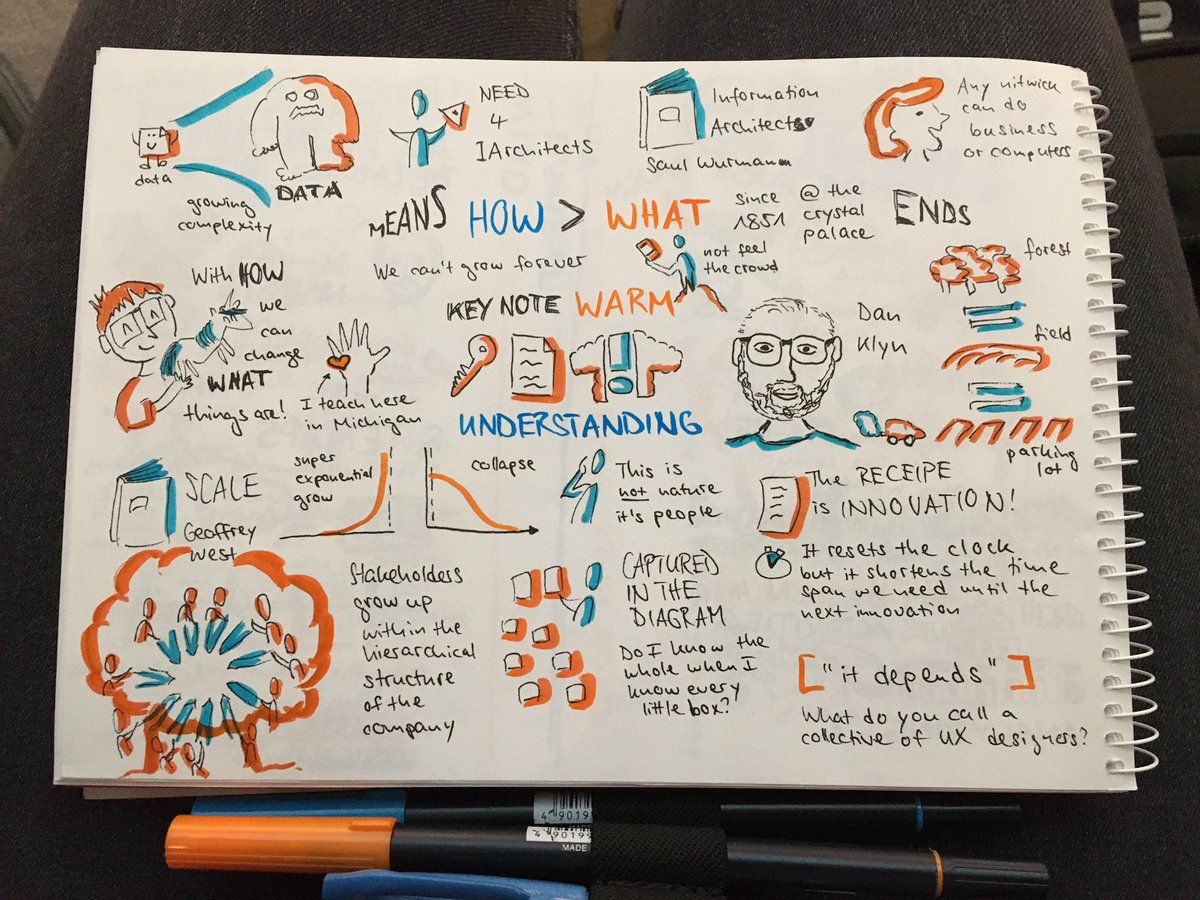 data
growing
complexity
DATA
NEED
4
IArchitects
Information
Architects
Saul Wurman
Any nitwick
can do
business
or computers
MEANS HOW > WHAT
since
1851
@ the
crystal
palace
ENDS
With HOW
we
can
change
WHAT
things are!
We can't grow forever
not feel
the crowd
KEY NOTE WARM
UNDERSTANDING
I teach here
in Michigan
Dan
Klyn
forest
field
parking
lot
SCALE
Geoffrey
West
super
exponential
grow
collapse
This is
not nature
it's people
The RECEIPE
is INNOVATION!
It resets the clock
but it shortens the time
span we need until the
next innovation
Stakeholders
grow up
within the
hierarchical
structure
of the
company
CAPTURED
IN THE
DIAGRAM
Do I know the
whole when I
know every
little box?
["it depends"]
What do you call a
collective of UX designers?
4 90199
4 90199
MADE